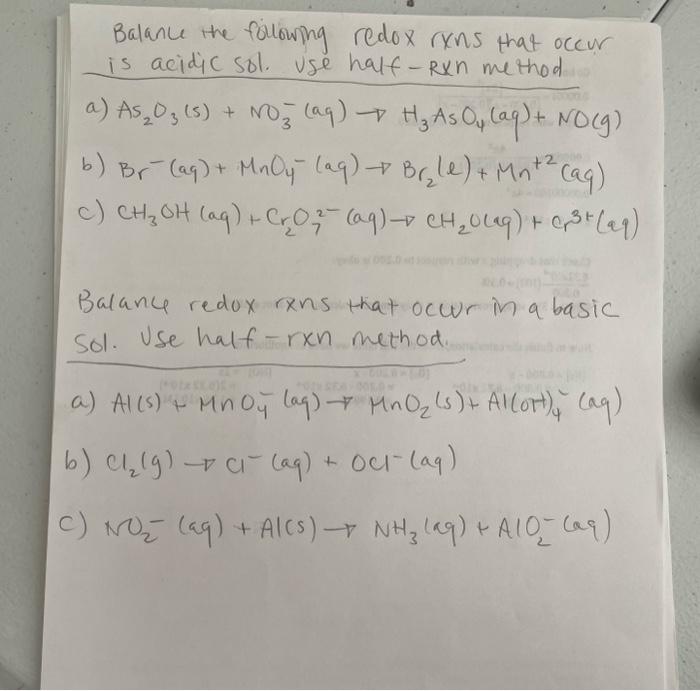 Balance the following redox rxns that occur
is acidic sol. Use half-Rxn method
a) As₂O₃(s) + NO₃⁻(aq) → H₃AsO₄(aq) + NO(g)
b) Br⁻(aq) + MnO₄⁻(aq) → Br₂(l) + Mn⁺²(aq)
c) CH₃OH(aq) + Cr₂O₇²⁻(aq) → CH₂O(aq) + Cr³⁺(aq)
Balance redox rxns that occur in a basic
sol. Use half-rxn method.
a) Al(s) + MnO₄⁻(aq) → MnO₂(s) + Al(OH)₄⁻(aq)
b) Cl₂(g) → Cl⁻(aq) + OCl⁻(aq)
c) NO₂⁻(aq) + Al(s) → NH₃(aq) + AlO₂⁻(aq)